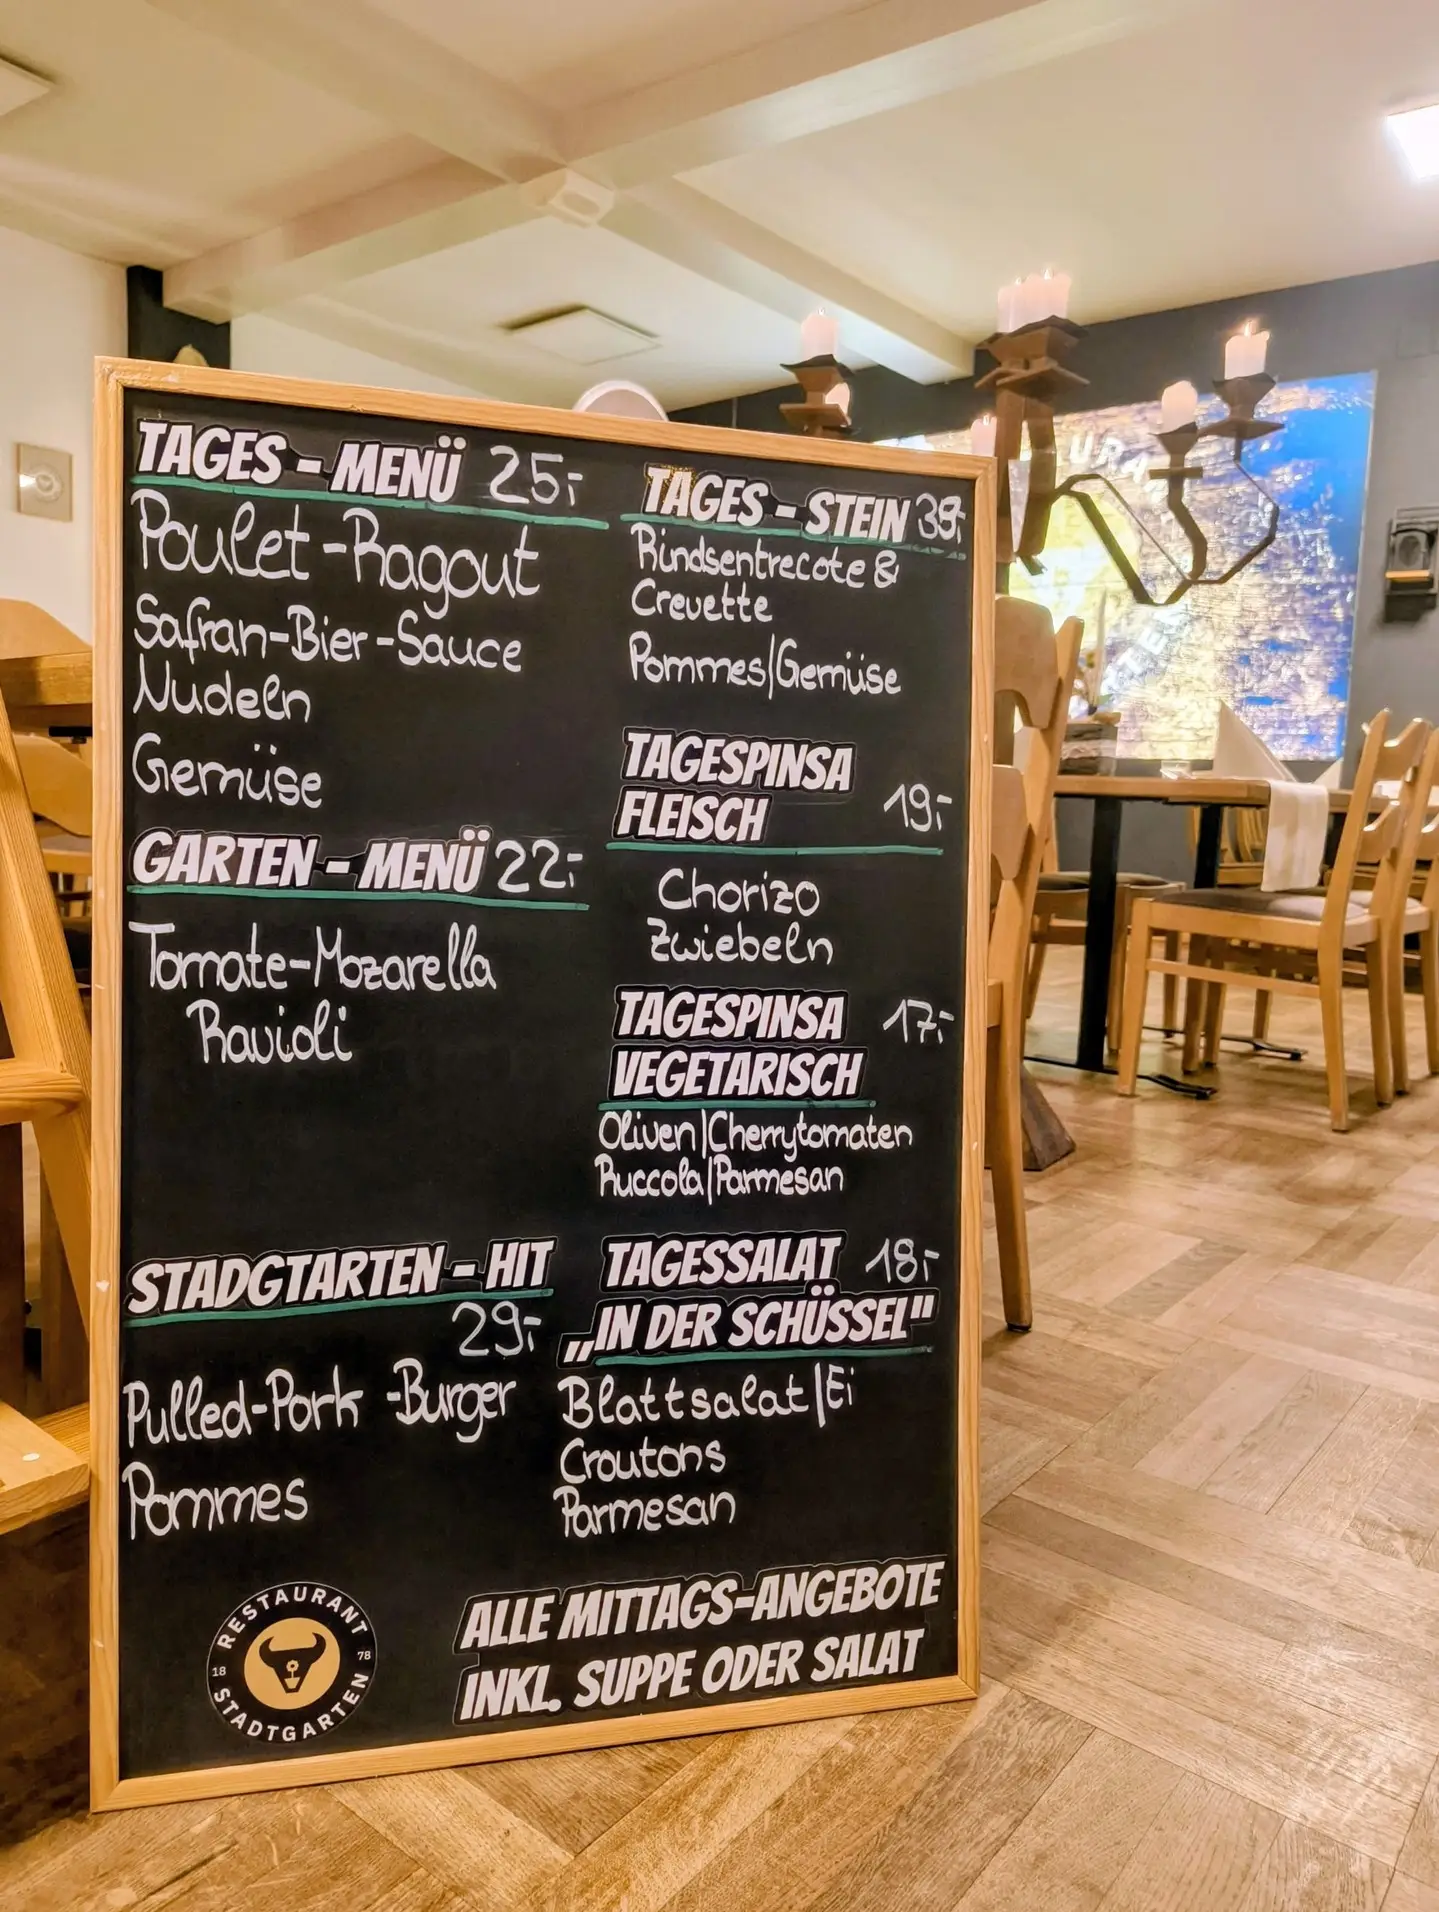 TAGES - MENÜ 25.-
Poulet-Ragout
Safran-Bier-Sauce
Nudeln
Gemüse
GARTEN - MENÜ 22.-
Tomate-Mozarella
Ravioli
STADGTARTEN - HIT
29.-
Pulled-Pork-Burger
Pommes
TAGES - STEIN
Rindsentrecote &
Crevette
Pommes/Gemüse
TAGESPINSA
FLEISCH 19.-
Chorizo
Zwiebeln
TAGESPINSA 17.-
VEGETARISCH
Oliven/Cherrytomaten
Ruccola/Parmesan
TAGESSALAT 18.-
„IN DER SCHÜSSEL"
Blattsalat/Ei
Croutons
Parmesan
RESTAURANT
18 78
STADTGARTEN
ALLE MITTAGS-ANGEBOTE
INKL. SUPPE ODER SALAT